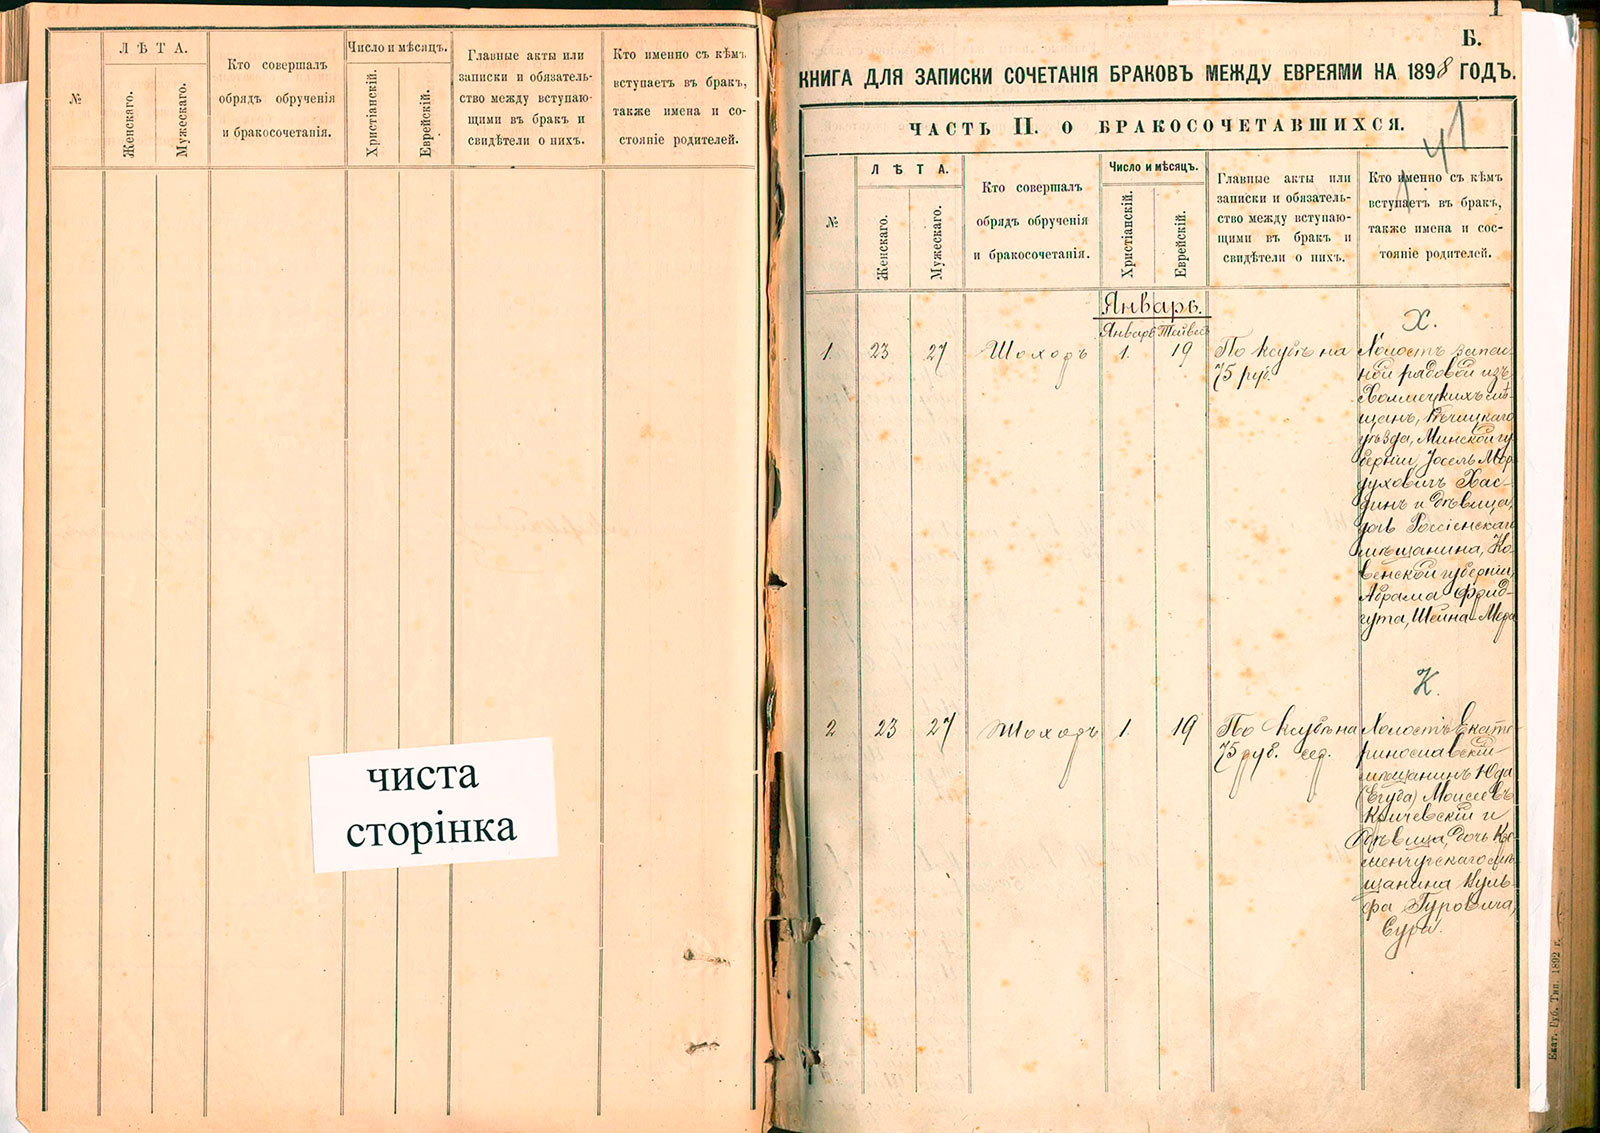 №
ЛѢТА.
Женскаго.
Мужескаго.
Кто совершалъ
обрядъ обрученія
и бракосочетанія.
Число и мѣсяцъ.
Христіанскій.
Еврейскій.
Главные акты или
записки и обязатель-
ство между вступаю-
щими въ бракъ и
свидѣтели о нихъ.
Кто именно съ кѣмъ
вступаетъ въ бракъ,
также имена и со-
стояніе родителей.
чиста
сторінка
Б.
КНИГА ДЛЯ ЗАПИСКИ СОЧЕТАНІЯ БРАКОВЪ МЕЖДУ ЕВРЕЯМИ НА 1898 ГОДЪ.
41
ЧАСТЬ II. О БРАКОСОЧЕТАВШИХСЯ.
№
ЛѢТА.
Женскаго.
Мужескаго.
Кто совершалъ
обрядъ обрученія
и бракосочетанія.
Число и мѣсяцъ.
Христіанскій.
Еврейскій.
Главные акты или
записки и обязатель-
ство между вступаю-
щими въ бракъ и
свидѣтели о нихъ.
Кто именно съ кѣмъ
вступаетъ въ бракъ,
также имена и сос-
тояніе родителей.
Январь.
Январь Тайвесъ
1. 23 27 Шохоръ 1. 19
По ксубѣ на
75 руб.
Х.
Холостъ запас-
ной рядовой изъ
Холмечскихъ мѣ-
щанъ, Рѣчицкаго
уѣзда, Минской гу
берніи Іосель Мор
духовичъ Хас-
динъ и дѣвица,
дочь Россіенскаго
мѣщанина, Ко-
венской губерніи,
Абрама Фрид-
гута, Шейна-Мера
2 23 27 Шохоръ 1. 19
По ксубѣ на
75 руб. сер.
К.
Холостъ Екате-
ринославскій
мѣщанинъ Юда
(Егуда) Моисеевъ
Кричевскій и
дѣвица, дочь Кре-
менчугскаго мѣ-
щанина Вуль-
фа Гуровича,
Сура.
Екат. Губ. Тип. 1892 г.